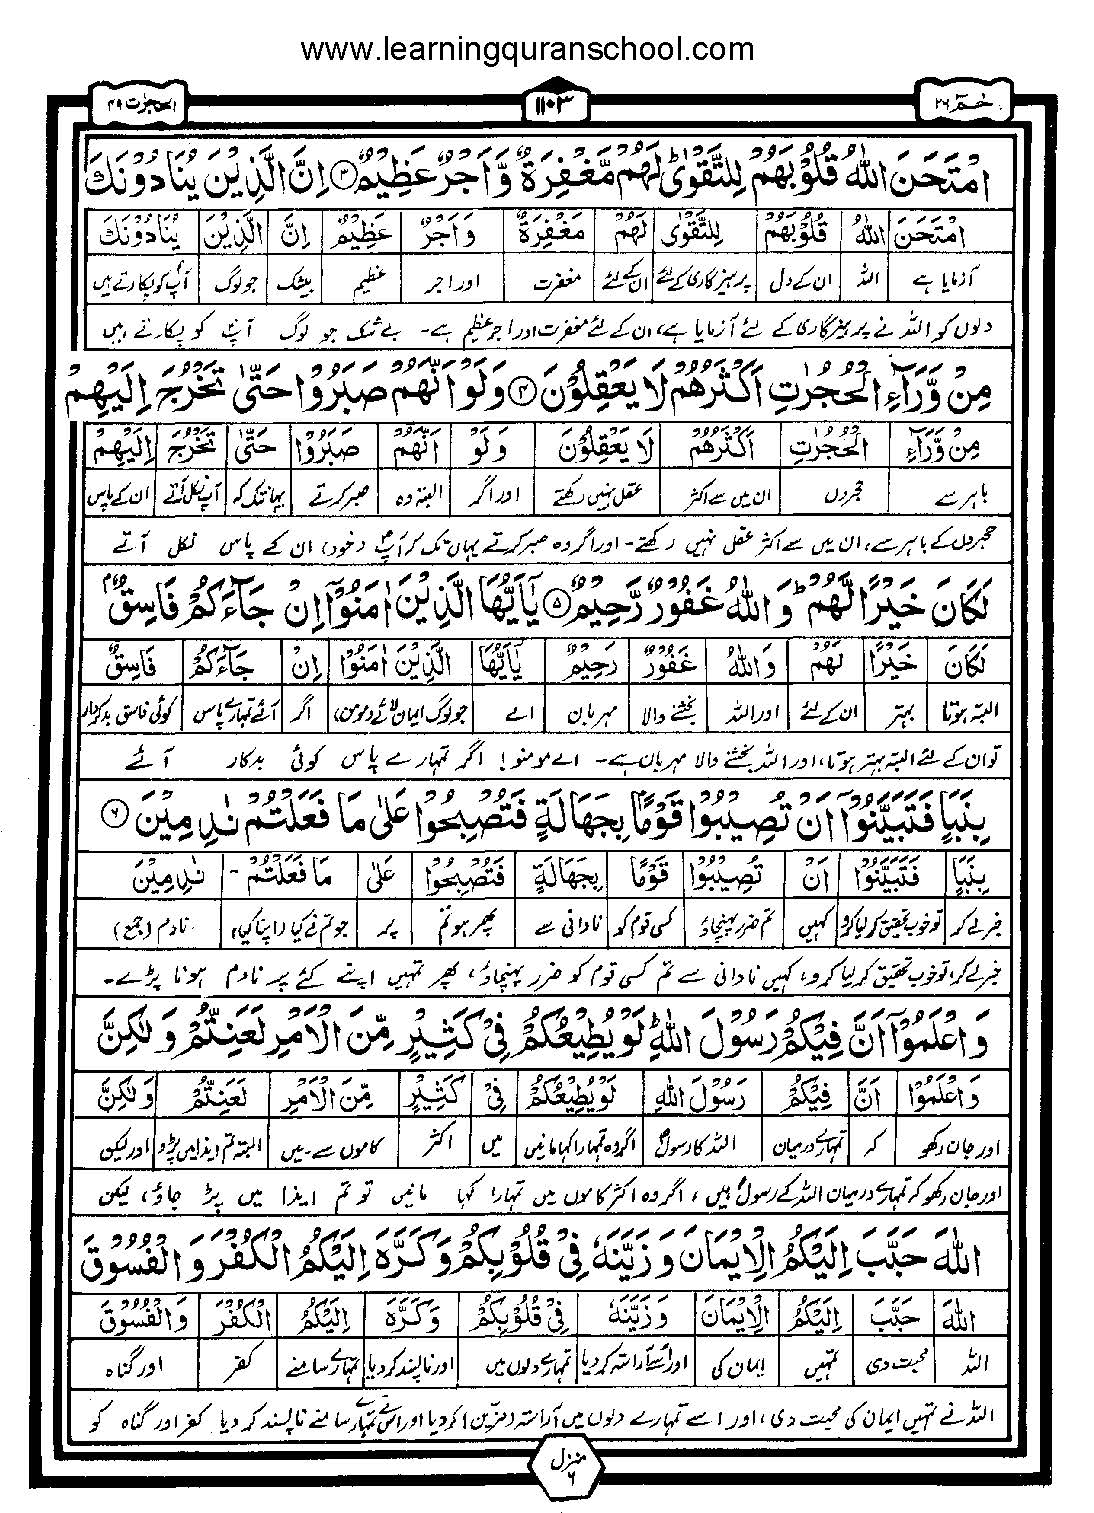 www.learningquranschool.com
الحجرٰت ۴۹ ۱۱۰۳ حٰمٓ ۲۶
امْتَحَنَ اللّٰهُ قُلُوْبَهُمْ لِلتَّقْوٰىؕ لَهُمْ مَّغْفِرَةٌ وَّاَجْرٌ عَظِيْمٌ ۳ اِنَّ الَّذِيْنَ يُنَادُوْنَكَ
امْتَحَنَ اللّٰهُ قُلُوْبَهُمْ لِلتَّقْوٰى لَهُمْ مَغْفِرَةٌ وَاَجْرٌ عَظِيْمٌ اِنَّ الَّذِيْنَ يُنَادُوْنَكَ
آزمایا ہے اللہ ان کے دل پرہیزگاری کے لئے ان کے لئے مغفرت اور اجر عظیم بیشک جو لوگ آپؐ کو پکارتے ہیں
دلوں کو اللہ نے پرہیزگاری کے لئے آزمایا ہے، ان کے لئے مغفرت اور اجر عظیم ہے۔ بے شک جو لوگ آپؐ کو پکارتے ہیں
مِنْ وَّرَآءِ الْحُجُرٰتِ اَكْثَرُهُمْ لَا يَعْقِلُوْنَ ۴ وَلَوْ اَنَّهُمْ صَبَرُوْا حَتّٰى تَخْرُجَ اِلَيْهِمْ
مِنْ وَّرَآءِ الْحُجُرٰتِ اَكْثَرُهُمْ لَا يَعْقِلُوْنَ وَلَوْ اَنَّهُمْ صَبَرُوْا حَتّٰى تَخْرُجَ اِلَيْهِمْ
باہر سے حجروں ان میں سے اکثر عقل نہیں رکھتے اور اگر البتہ وہ صبر کرتے یہانتک کہ آپؐ نکل آتے ان کے پاس
حجروں کے باہر سے، ان میں سے اکثر عقل نہیں رکھتے۔ اور اگر وہ صبر کرتے یہاں تک کہ آپؐ (خود) ان کے پاس نکل آتے
لَكَانَ خَيْرًا لَّهُمْؕ وَاللّٰهُ غَفُوْرٌ رَّحِيْمٌ ۵ يٰۤاَيُّهَا الَّذِيْنَ اٰمَنُوْۤا اِنْ جَآءَكُمْ فَاسِقٌۢ
لَكَانَ خَيْرًا لَهُمْ وَاللّٰهُ غَفُوْرٌ رَحِيْمٌ يٰۤاَيُّهَا الَّذِيْنَ اٰمَنُوْۤا اِنْ جَآءَكُمْ فَاسِقٌ
البتہ ہوتا بہتر ان کے لئے اور اللہ بخشنے والا مہربان اے جو لوگ ایمان لائے (مومن) اگر آئے تمہارے پاس کوئی فاسق بدکردار
تو ان کے لئے البتہ بہتر ہوتا، اور اللہ بخشنے والا مہربان ہے۔ اے مومنو! اگر تمہارے پاس کوئی بدکار آئے
بِنَبَاٍ فَتَبَيَّنُوْۤا اَنْ تُصِيْبُوْا قَوْمًۢا بِجَهَالَةٍ فَتُصْبِحُوْا عَلٰى مَا فَعَلْتُمْ نٰدِمِيْنَ ۶
بِنَبَاٍ فَتَبَيَّنُوْۤا اَنْ تُصِيْبُوْا قَوْمًا بِجَهَالَةٍ فَتُصْبِحُوْا عَلٰى مَا فَعَلْتُمْ نٰدِمِيْنَ
خبر لے کر تو خوب تحقیق کر لیا کرو کہیں تم ضرر پہنچاؤ کسی قوم کو نادانی سے پھر ہو تم پر جو تم نے کیا (اپنا کیا) نادم (جمع)
خبر لے کر، تو خوب تحقیق کر لیا کرو، کہیں نادانی سے تم کسی قوم کو ضرر پہنچاؤ، پھر تمہیں اپنے کئے پر نادم ہونا پڑے۔
وَاعْلَمُوْۤا اَنَّ فِيْكُمْ رَسُوْلَ اللّٰهِؕ لَوْ يُطِيْعُكُمْ فِيْ كَثِيْرٍ مِّنَ الْاَمْرِ لَعَنِتُّمْ وَلٰكِنَّ
وَاعْلَمُوْۤا اَنَّ فِيْكُمْ رَسُوْلَ اللّٰهِ لَوْ يُطِيْعُكُمْ فِيْ كَثِيْرٍ مِّنَ الْاَمْرِ لَعَنِتُّمْ وَلٰكِنَّ
اور جان رکھو کہ تمہارے درمیان اللہ کا رسولؐ اگر وہ تمہارا کہا مانیں میں اکثر کاموں سے۔ میں البتہ تم ایذا میں پڑو اور لیکن
اور جان رکھو کہ تمہارے درمیان اللہ کے رسولؐ ہیں، اگر وہ اکثر کاموں میں تمہارا کہا مانیں تو تم ایذا میں پڑ جاؤ، لیکن
اللّٰهَ حَبَّبَ اِلَيْكُمُ الْاِيْمَانَ وَزَيَّنَهٗ فِيْ قُلُوْبِكُمْ وَكَرَّهَ اِلَيْكُمُ الْكُفْرَ وَالْفُسُوْقَ
اللّٰهَ حَبَّبَ اِلَيْكُمُ الْاِيْمَانَ وَزَيَّنَهٗ فِيْ قُلُوْبِكُمْ وَكَرَّهَ اِلَيْكُمُ الْكُفْرَ وَالْفُسُوْقَ
اللہ محبت دی تمہیں ایمان کی اور اُسے آراستہ کر دیا تمہارے دلوں میں اور ناپسند کر دیا تمہارے سامنے کفر اور گناہ
اللہ نے تمہیں ایمان کی محبت دی، اور اسے تمہارے دلوں میں آراستہ (مزین) کر دیا اور اس نے تمہارے سامنے ناپسند کر دیا کفر اور گناہ کو
منزل ۶